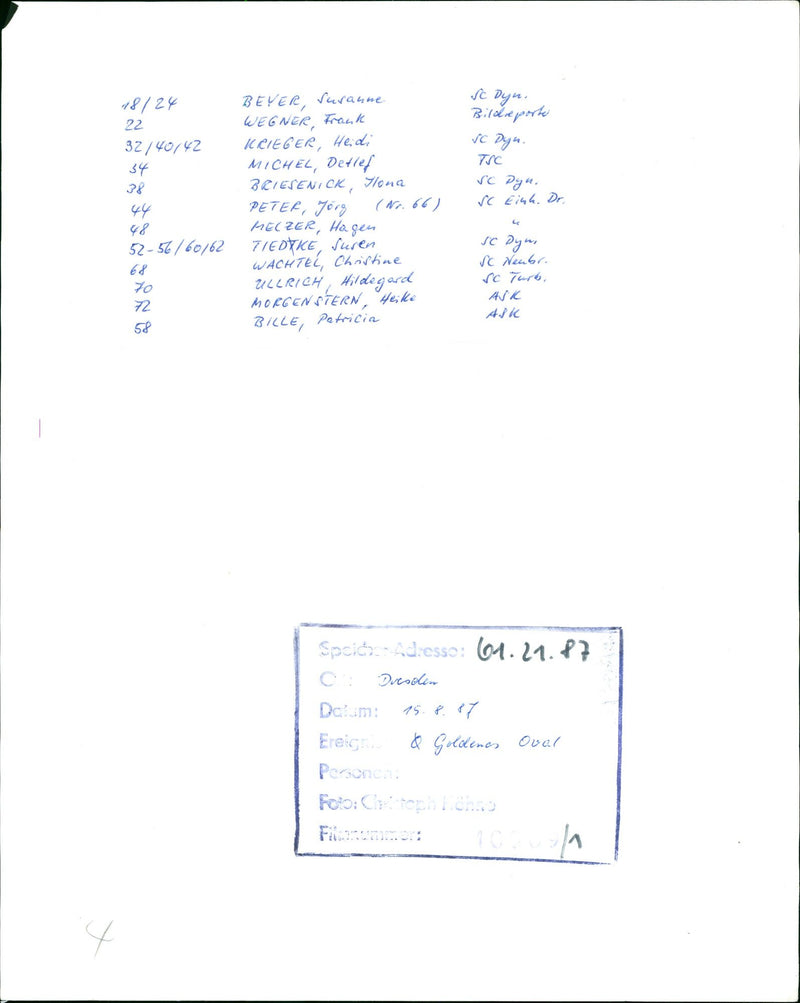 18/24 BEYER, Susanne SC Dyn.
22 WEGNER, Frank Bildreporter
32/40/42 KRIEGER, Heidi SC Dyn.
34 MICHEL, Detlef TSC
38 BRIESENICK, Ilona SC Dyn.
44 PETER, Jörg (Nr. 66) SC Einh. Dr.
48 MELZER, Hagen "
52-56/60/62 TIEDTKE, Susen SC Dyn.
68 WACHTEL, Christine SC Neubr.
70 ULLRICH, Hildegard SC Turb.
72 MORGENSTERN, Heike ASK
58 BILLE, Patricia ASK
Speicher-Adresse: 61.21.87
Ort: Dresden
Datum: 15.8.87
Ereignis: Goldenes Oval
Personen:
Foto: Christoph Höhne
Filmnummer: /1
4